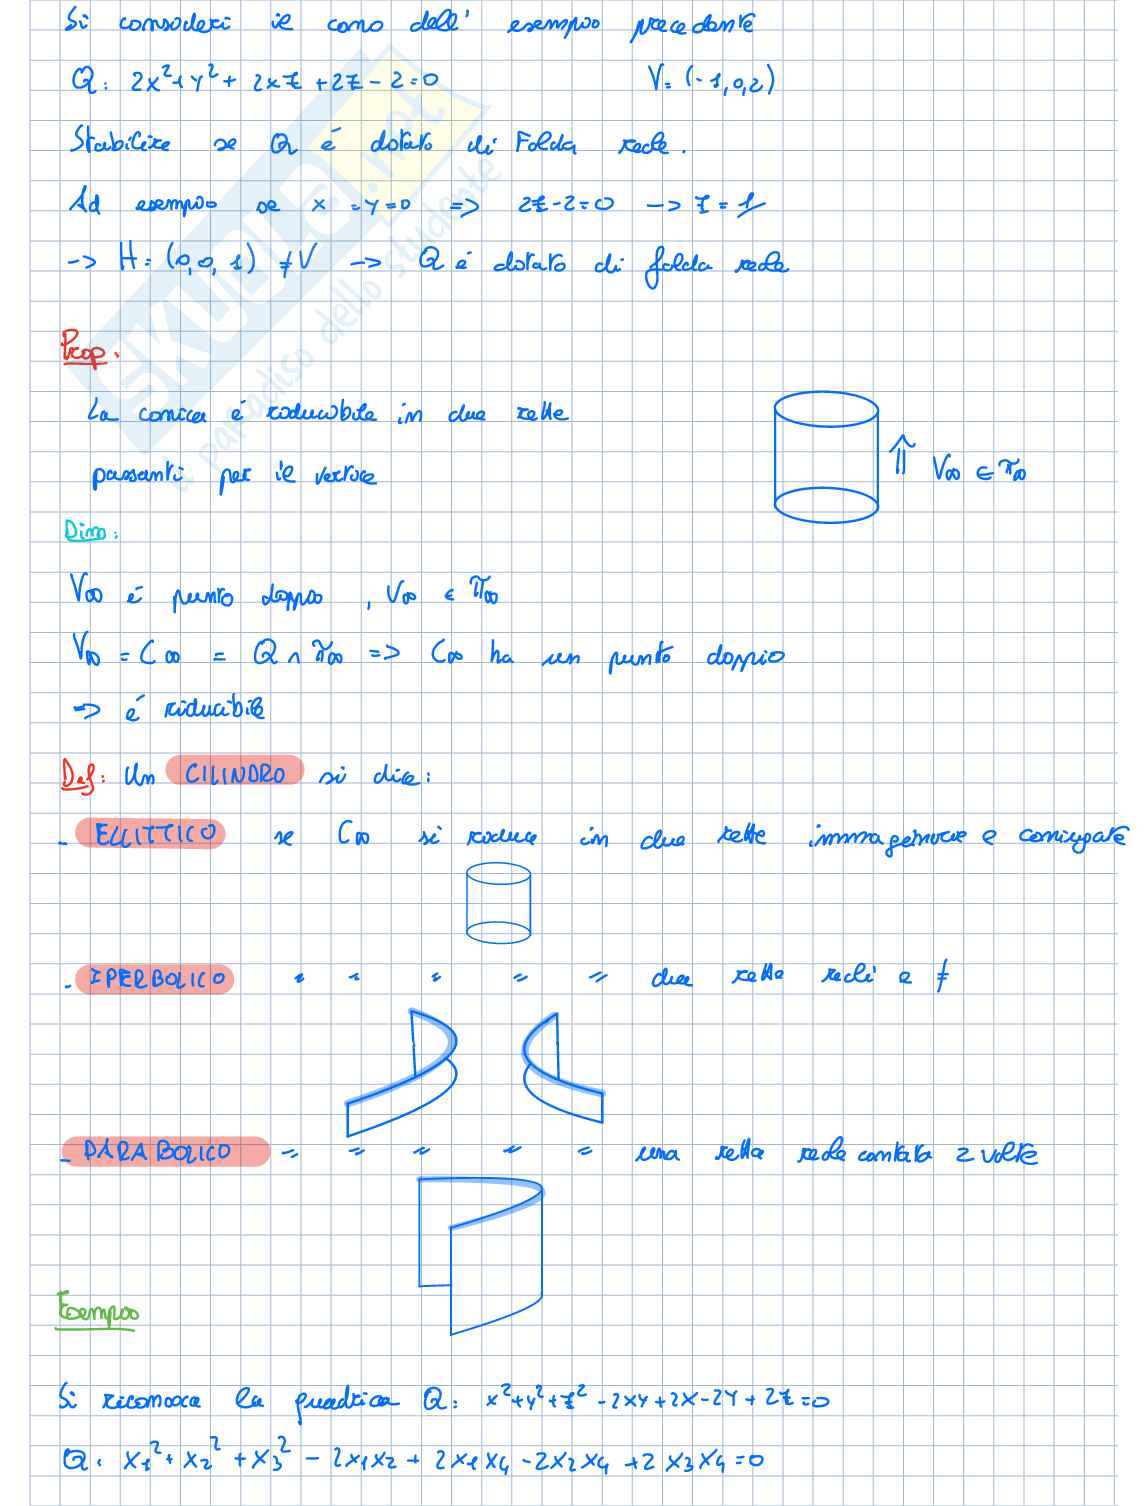 Si consideri il cono dell' esempio precedente
Q: 2x²+y²+ 2xz +2z-2=0 V=(-1,0,2)
Stabilire se Q é dotato di Folda reale.
Ad esempio se x=y=0 => 2z-2=0 -> z=1
-> H=(0,0,1) ≠V -> Q é dotato di folda reale
Prop.
La conica é riducibile in due rette
passanti per il vertice
V∞ ∈ π∞
Dim:
V∞ é punto doppio , V∞ ∈ π∞
V∞ = C∞ = Q ∩ π∞ => C∞ ha un punto doppio
=> é riducibile
Def: Un CILINDRO si dice:
- ELLITTICO se C∞ si riduce in due rette immaginarie e coniugate
- IPERBOLICO " " " " " due rette reali e ≠
- PARABOLICO " " " " " una retta reale contata 2 volte
Esempio
Si riconosca la quadrica Q: x²+y²+z²-2xy+2x-2y+2z=0
Q: x₁²+x₂²+x₃²-2x₁x₂+2x₁x₄-2x₂x₄+2x₃x₄=0
SKUOLA.net
il paradiso dello studente